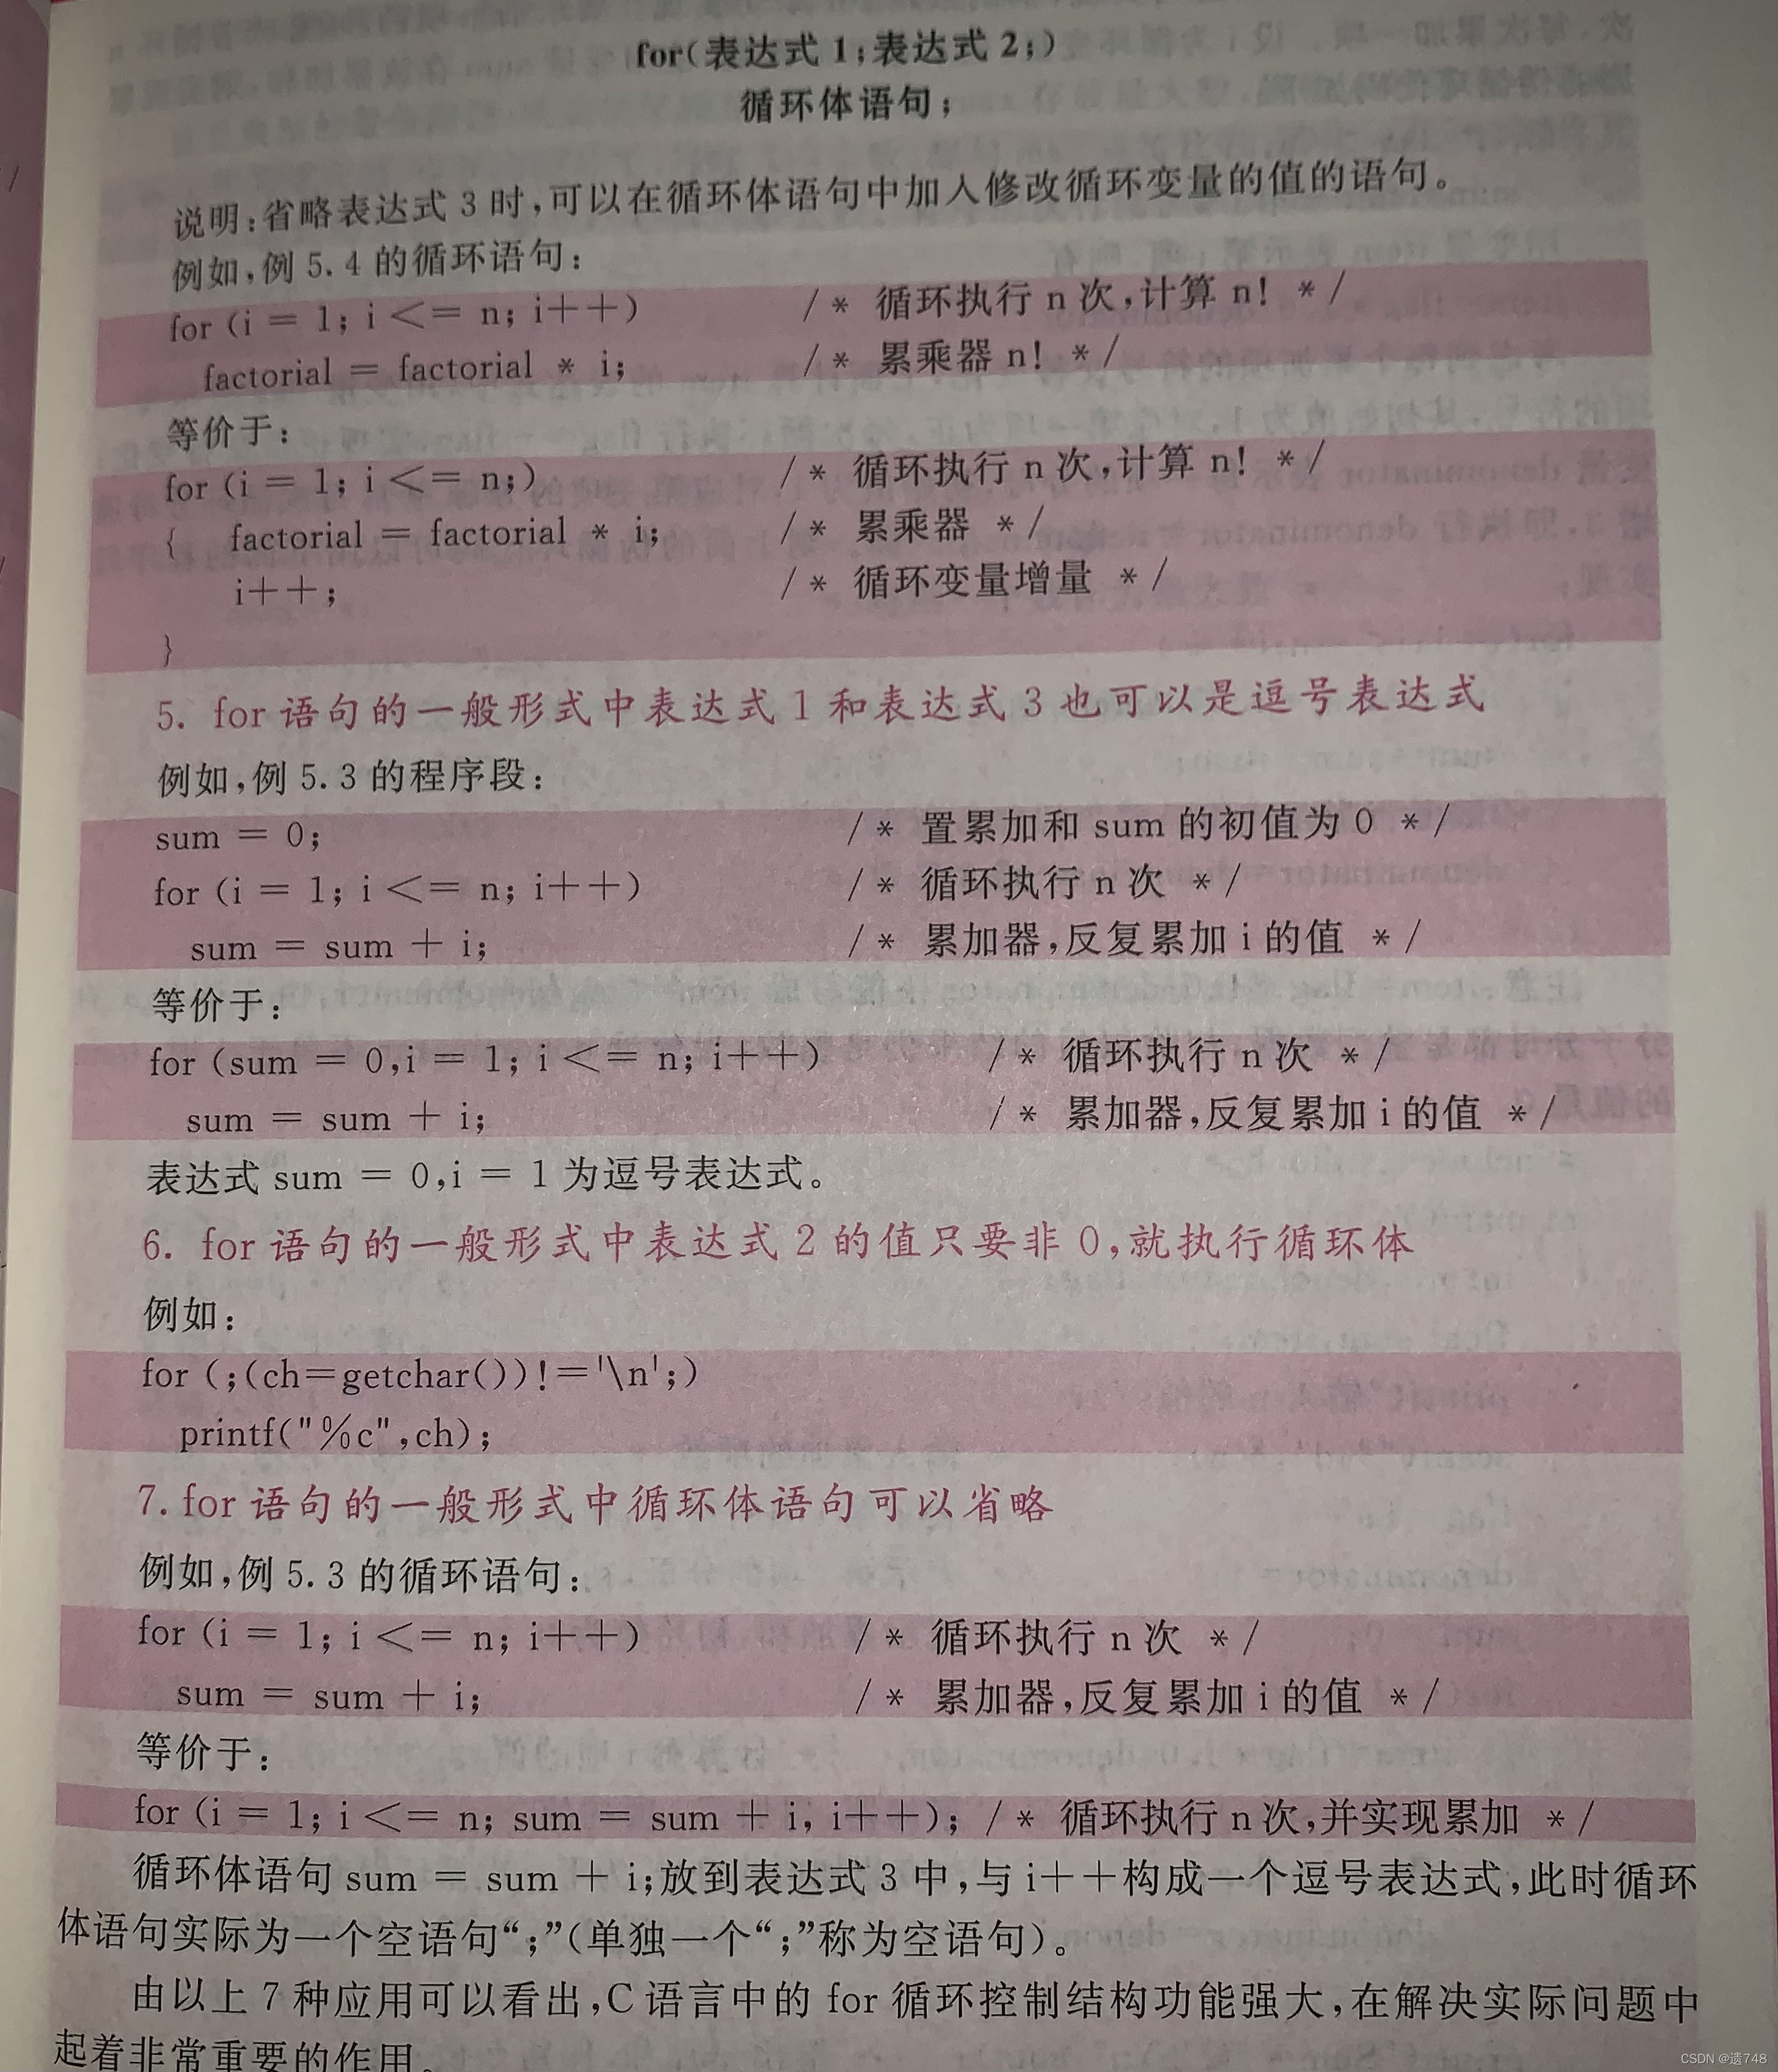 for(表达式1;表达式2;)
循环体语句;
说明:省略表达式3时,可以在循环体语句中加入修改循环变量的值的语句。
例如,例5.4的循环语句:
for (i = 1; i <= n; i++) /* 循环执行n次,计算n! */
factorial = factorial * i; /* 累乘器n! */
等价于:
for (i = 1; i <= n;) /* 循环执行n次,计算n! */
{ factorial = factorial * i; /* 累乘器 */
i++; /* 循环变量增量 */
}
5. for语句的一般形式中表达式1和表达式3也可以是逗号表达式
例如,例5.3的程序段:
sum = 0; /* 置累加和sum的初值为0 */
for (i = 1; i <= n; i++) /* 循环执行n次 */
sum = sum + i; /* 累加器,反复累加i的值 */
等价于:
for (sum = 0,i = 1; i <= n; i++) /* 循环执行n次 */
sum = sum + i; /* 累加器,反复累加i的值 */
表达式sum = 0,i = 1为逗号表达式。
6. for语句的一般形式中表达式2的值只要非0,就执行循环体
例如:
for (;(ch=getchar())!='\n';)
printf("%c",ch);
7. for语句的一般形式中循环体语句可以省略
例如,例5.3的循环语句:
for (i = 1; i <= n; i++) /* 循环执行n次 */
sum = sum + i; /* 累加器,反复累加i的值 */
等价于:
for (i = 1; i <= n; sum = sum + i, i++); /* 循环执行n次,并实现累加 */
循环体语句sum = sum + i;放到表达式3中,与i++构成一个逗号表达式,此时循环
体语句实际为一个空语句“;”(单独一个“;”称为空语句)。
由以上7种应用可以看出,C语言中的for循环控制结构功能强大,在解决实际问题中
起着非常重要的作用。
CSDN @遗748